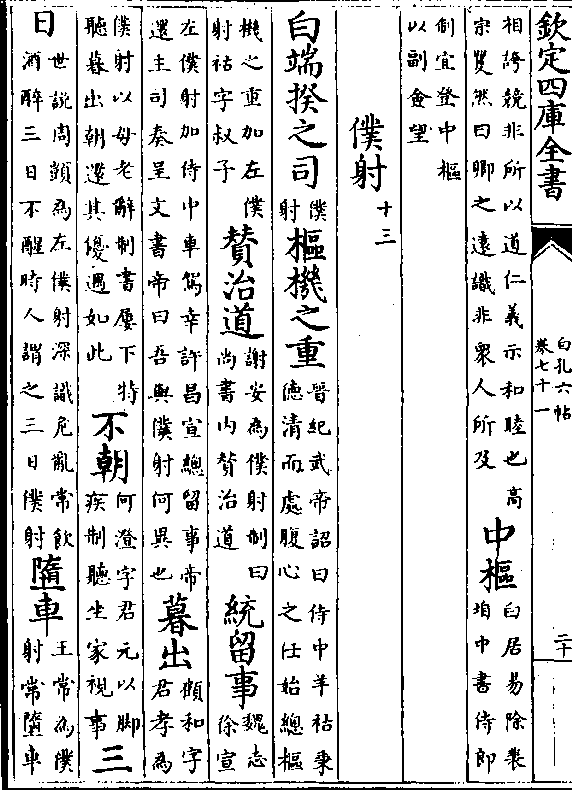 欽定四庫全書
白孔六帖
卷七十一
二十
相誇競非所以道仁義示和睦也 高
宗矍然曰卿之遠識非衆人所及
中樞
白居易除裴
垍中書侍郎
制宜登中樞
以副僉望
僕射 十三
白端揆之司
僕
射
樞機之重
晉紀武帝詔曰侍中羊祜秉
徳清而處腹心之任始總樞
機之重加左僕
射祜字叔子
賛治道
謝安為僕射制曰
尚書内賛治道
統留事
魏志
徐宣
左僕射加侍中車駕幸許昌宣總留事帝
還主司奏呈文書帝曰吾與僕射何異也
暮出
顧和字
君孝為
僕射以母老辭制書屢下特
聽暮出朝還其優遇如此
不朝
何澄字君元以脚
疾制聽坐家視事
三
日
世說周顗為左僕射深識危亂常飲
酒醉三日不醒時人謂之三日僕射
墮車
王常為僕
射常墮車